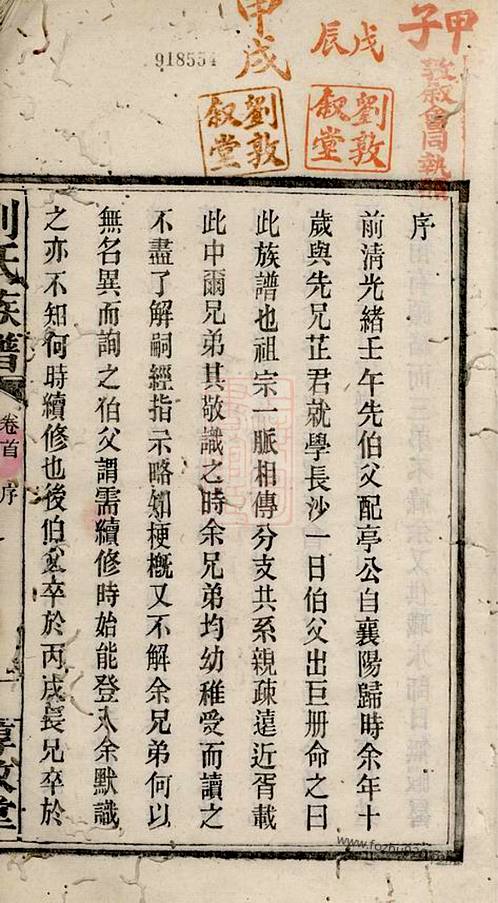 甲子
敦敘會同執
戊辰
劉敦敘堂
甲戌
劉敦敘堂
918554
序
前清光緒壬午先伯父配亭公自襄陽歸時余年十
歲與先兄芷君就學長沙一日伯父出巨册命之曰
此族譜也祖宗一脈相傳分支共系親疎遠近胥載
此中爾兄弟其敬識之時余兄弟均幼稚受而讀之
不盡了解嗣經指示略知梗槪又不解余兄弟何以
無名異而詢之伯父謂需續修時始能登入余默識
之亦不知何時續修也後伯父卒於丙戌長兄卒於
劉氏族譜
卷首
序
一
敦敘堂
www.fozhu920.com